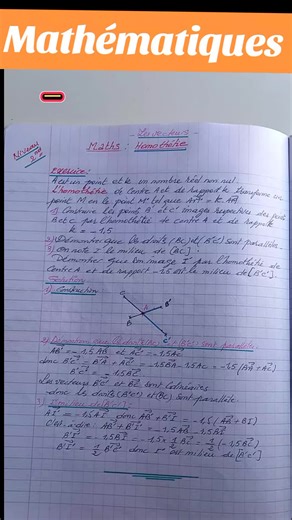 Mathématiques
Les vecteurs
Maths : Homothétie
Niveau
Exercice :
A est un point et k un nombre réel non nul.
L'homothétie de centre A et de rapport k transforme un
point M en le point M' tel que AM' = k AM
1) Construire les points B' et C' images respectives des points
B et C par l'homothétie de centre A et de rapport
k = -1,5
2) Démontrer que les droites (BC) et (B'C') sont parallèles
3) On note I le milieu de [BC].
Démontrer que l'image I' par l'homothétie de
centre A et de rapport -1,5 est le milieu de [B'C'].
Solution
1) Construction
C
B'
A
B
C'
2) Démontrons que les droites (BC) et (B'C') sont parallèles
AB' = -1,5 AB et AC' = -1,5 AC
donc B'C' = B'A + AC' = -1,5 BA - 1,5 AC = -1,5 (BA + AC)
B'C' = -1,5 BC
Les vecteurs B'C' et BC sont colinéaires
donc les droites (B'C') et (BC) sont parallèles
AI' = -1,5 AI donc AB' + B'I' = -1,5 (AB + BI)
C'est-à-dire : AB' + B'I' = -1,5 AB - 1,5 BI
B'I' = -1,5 BI = -1,5 × 1/2 BC = 1/2 (-1,5 BC)
B'I' = 1/2 B'C' donc I' est milieu de [B'C']